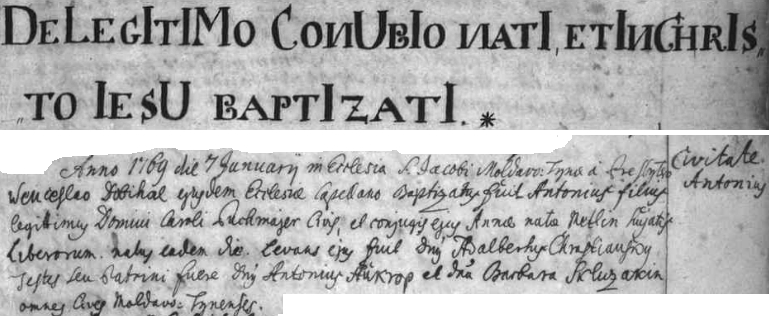 DE LEGITIMO CONUBIO NATI, ET IN CHRIS„
„TO IESU BAPTIZATI. *
Anno 1769 die 7 Januarij in Ecclesia S. Jacobi Moldavo: Tynæ à
Civitate.
Wenceslao Dobihal ejusdem Ecclesiæ Capellano Baptizatus fuit Antonius filius
Antonius
legitimus Domini Caroli Puchmajer Civis, et conjugis ejus Annæ natæ
Liberorum. natus eadem die. Levans ejus fuit Dnus Adalbertus Christianssky
Testes seu Patrini fuere Dnus Antonius Aukrop et dna Barbara Skluzakin
omnes Cives Moldavo: Tynenses.